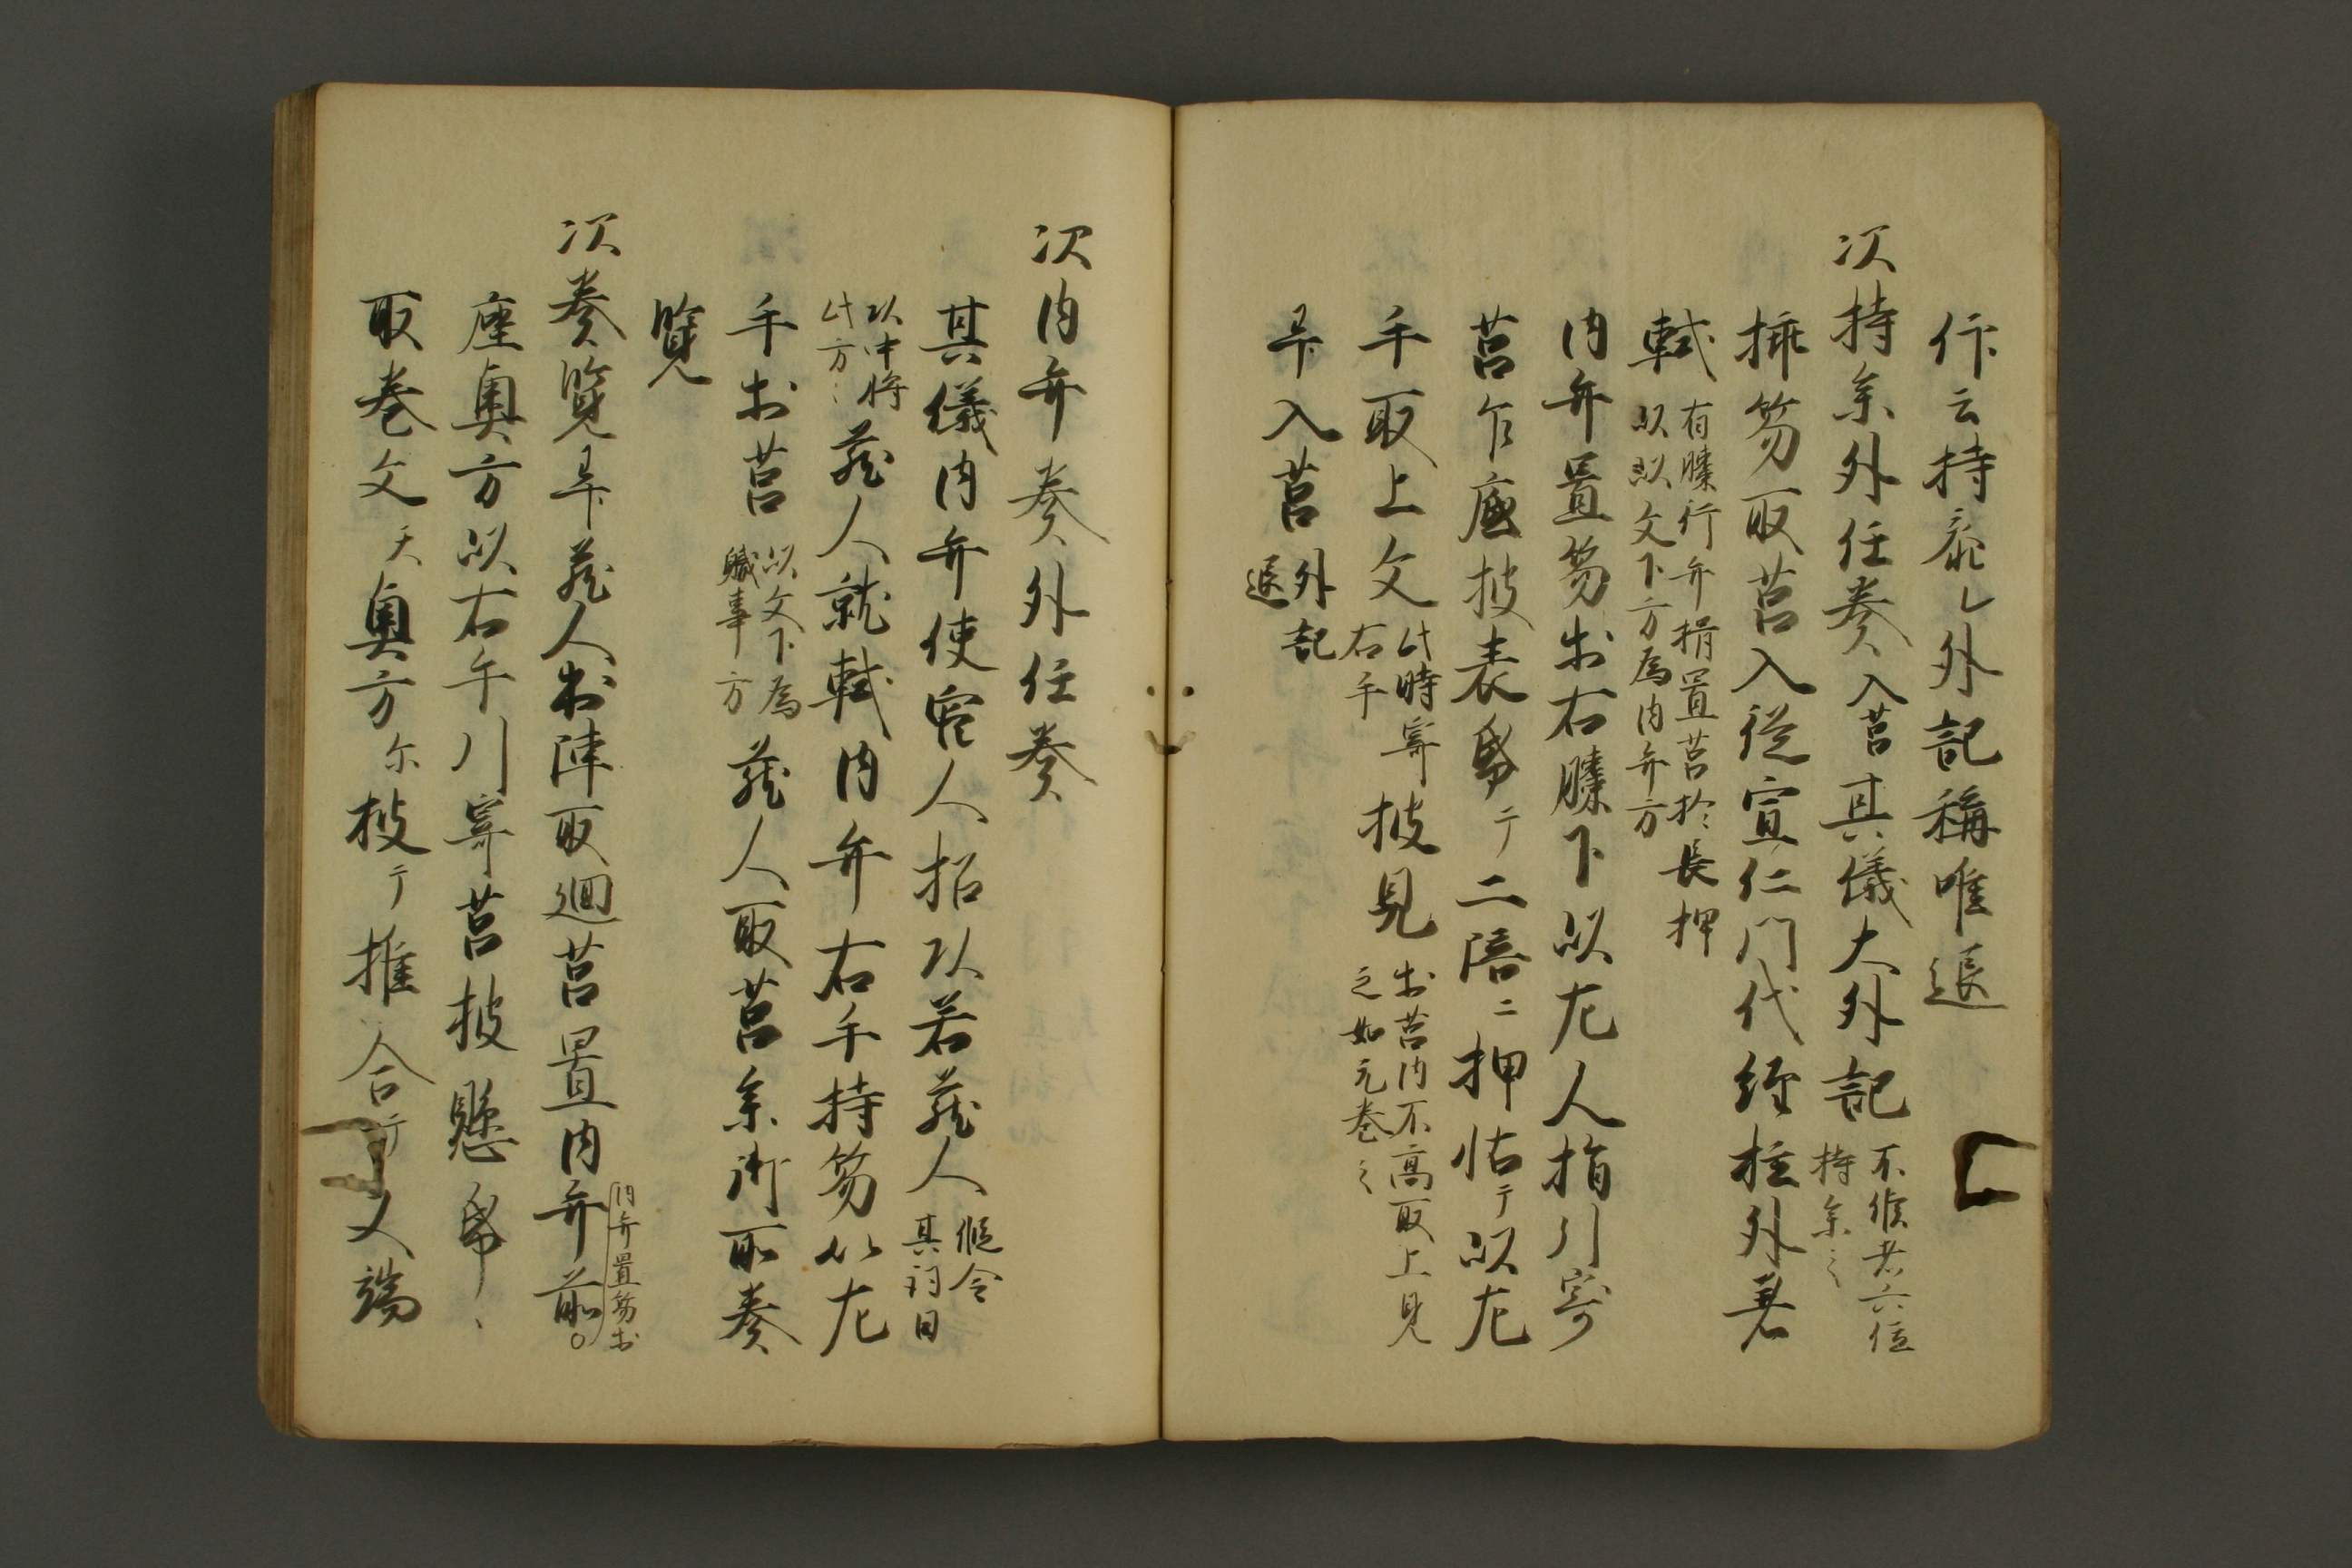 仰云持参レ外記稱唯退
次持参外任奏入筥其儀大外記不候者六位持参之
挿笏取筥入従宣仁門代経柱外着
軾有膝行弁揖置筥於長押以以文下方為内弁方
内弁置笏出右膝下以左人指引寄
筥乍座披表帋テ二倍ニ押帖テ以左
手取上文此時寄右手披見出筥内不高取上見之如元巻之
畢入筥外記退
次内弁奏外任奏
其儀内弁使官人招以若蔵人仮令其詞曰
以中将此方ヘ蔵人就軾内弁右手持笏以左
手出筥以文下為職事方蔵人取筥参御所奏
覧
次奏覧畢蔵人出陣取廻筥置内弁前。内弁置笏出
座奥方以右手引寄筥披懸帋、
取巻文天奥方尓披テ推合テ又端